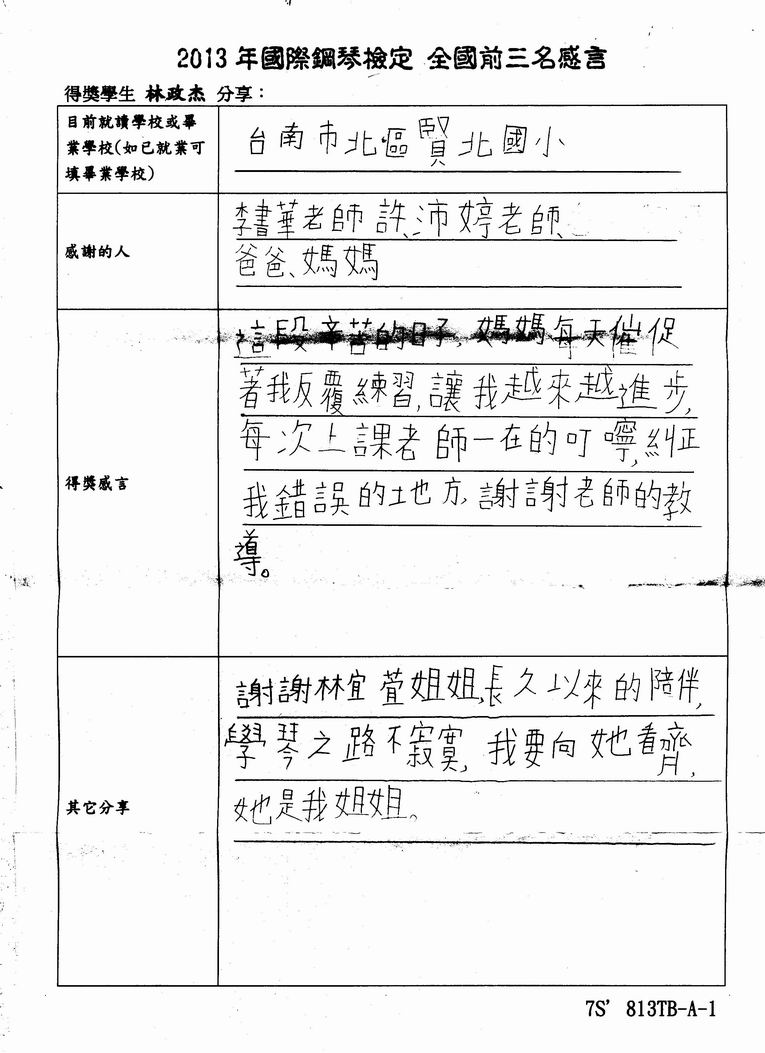 2013 年國際鋼琴檢定 全國前三名感言
得獎學生 林政杰 分享：
目前就讀學校或畢
業學校(如已就業可
填畢業學校)
台南市北區賢北國小
感謝的人
李書華老師、許沛婷老師、
爸爸、媽媽
得獎感言
這段辛苦的日子,媽媽每天催促
著我反覆練習,讓我越來越進步,
每次上課老師一在的叮嚀,糾正
我錯誤的地方,謝謝老師的教
導。
其它分享
謝謝林宜萱姐姐,長久以來的陪伴,
學琴之路不寂寞,我要向她看齊,
她是我姐姐。
7S' 813TB-A-1